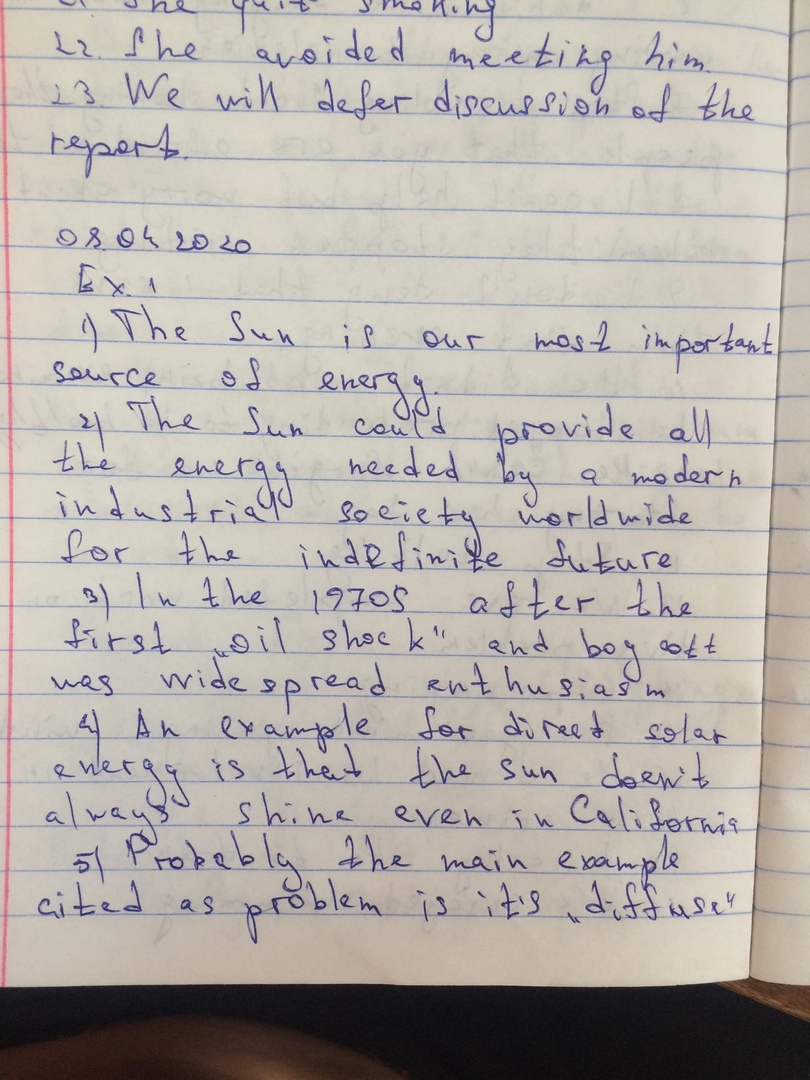 She quit smoking
22. She avoided meeting him.
23. We will defer discussion of the
report.
08 04 2020
Ex. 1
1) The Sun is our most important
source of energy.
2) The Sun could provide all
the energy needed by a modern
industrial society worldwide
for the indefinite future
3) In the 1970s after the
first „oil shock" and boycott
was widespread enthusiasm
4) An example for direct solar
energy is that the sun doen't
always shine even in California
5) Probably the main example
cited as problem is it's „diffuse"